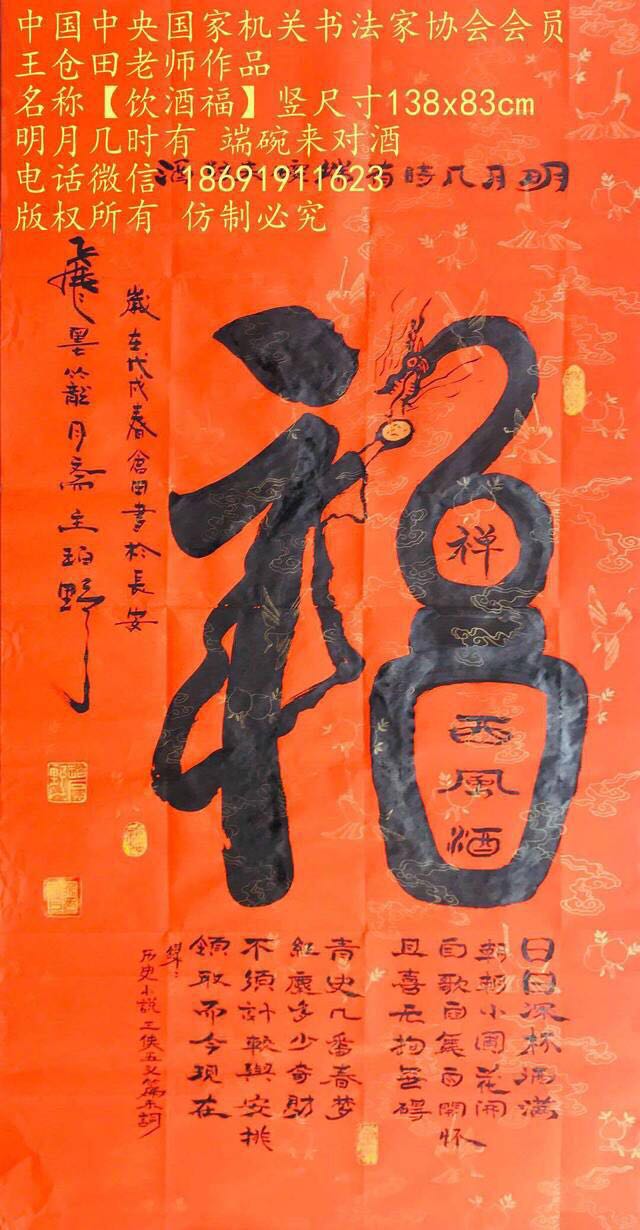 中国中央国家机关书法家协会会员
王仓田老师作品
名称【饮酒福】竖尺寸138x83cm
明月几时有 端碗来对酒
电话微信 18691911623
版权所有 仿制必究
明月几時有 酒
福
禅
西風酒
日日深杯酒满
朝朝小圃花開
自歌自舞自開怀
且喜无拘無碍
青史几番春梦
紅塵多少奇財
不須計較與安排
領取而今現在
録：
历史小说三侠五义篇末詞
歲在戊戌春倉田書於長安
飛墨籠月斋主珀野